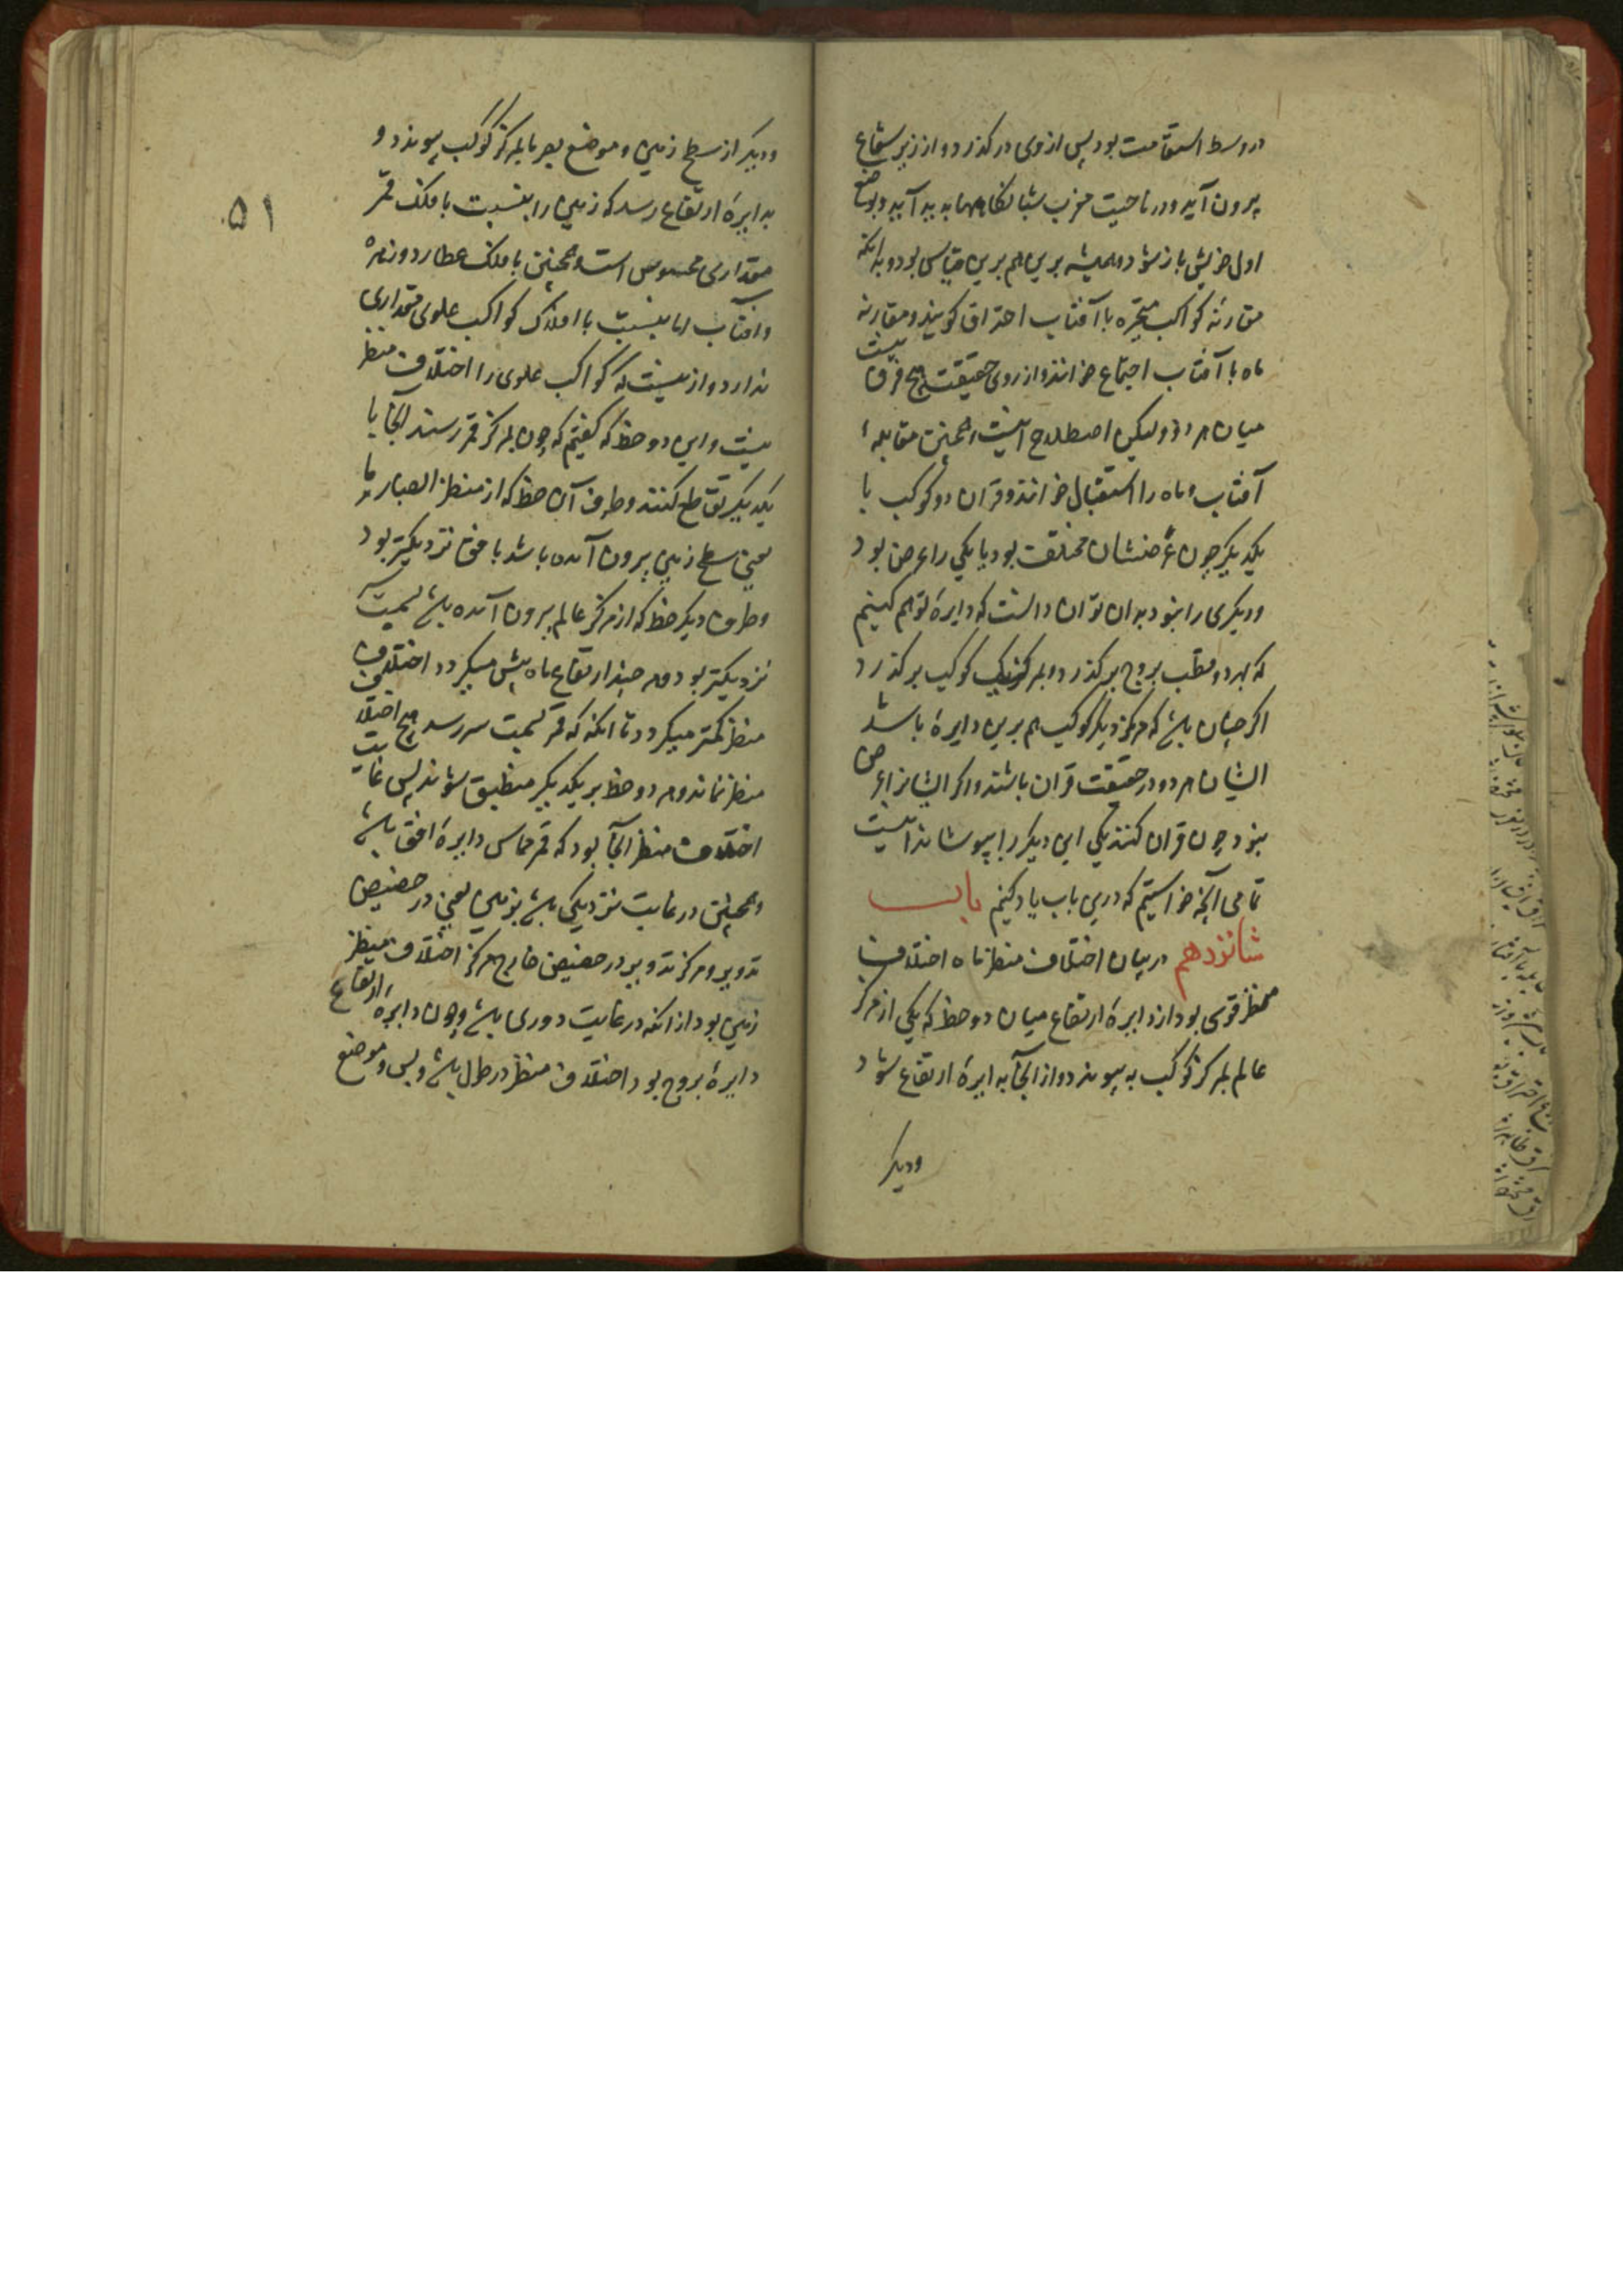 در وسط استقامت بود پس از وی درگذرد و از زیر شعاع
بیرون آید و در ناحیت مغرب شبانگاهها پدید آید و بوضع
اول خویش باز شود و همیشه برین هم برین قیاس بود و بدانکه
مقارنه کواکب متحیره با آفتاب احتراق گویند و مقارنه
ماه با آفتاب اجتماع خوانند و از روی حقیقت هیچ فرق نیست
میان هر دو ولیکن اصطلاح اینست و همچنین مقابلهٔ
آفتاب و ماه را استقبال خوانند و قران دو کوکب با
یکدیگر چون عرضشان مختلف بود یا یکی را عرض بود
و دیگری را نبود بدان توان دانست که دایرهٔ توهم کنیم
که بهر دو قطب بروج برگذرد و بمرکز یک کوکب برگذرد
اگر چنان باشد که مرکز دیگر کوکب هم برین دایره باشد
ایشان هر دو در حقیقت قران باشند و اگر ایشانرا عرض
نبود چون قران کنند یکی این دیگر را بپوشاند اینست
تمامی آنچه خواستیم که درین باب یاد کنیم باب
شانزدهم در بیان اختلاف منظر ماه اختلاف
منظر قوسی بود از دایرهٔ ارتفاع میان دو خط که یکی از مرکز
عالم بمرکز کوکب به پیوندد و از آنجا بدایرهٔ ارتفاع شود
و دیگر
۵۱
و دیگر از سطح زمین و موضع بصر ما بمرکز کوکب پیوندد و
بدایرهٔ ارتفاع رسد که زمین را بنسبت با فلک قمر
مقداری محسوس است و همچنین با فلک عطارد و زهره
و آفتاب اما بنسبت با افلاک کواکب علوی مقداری
ندارد و ازینست که کواکب علوی را اختلاف منظر
نیست و این دو خط که گفتیم که چون بمرکز قمر رسند آنجا با
یکدیگر تقاطع کنند و طرف آن خط که از منظر ابصار ما
یعنی سطح زمین بیرون آمده باشد بافق نزدیکتر بود
و طرف دیگر خط که از مرکز عالم بیرون آمده باشد بسمت
نزدیکتر بود و هر چند ارتفاع ماه بیش میگردد اختلاف
منظر کمتر میگردد تا آنکه که قمر بسمت سر رسد هیچ اختلاف
منظر نماند و هر دو خط بر یکدیگر منطبق شوند پس غایت
اختلاف منظر آنجا بود که قمر مماس دایرهٔ افق باشد
و همچنین در غایت نزدیکی باشد بزمین یعنی در حضیض
تدویر و مرکز تدویر در حضیض خارج مرکز اختلاف منظر
زمین بود از آنکه در غایت دوری باشد و چون دایرهٔ ارتفاع
دایرهٔ بروج بود اختلاف منظر در طول باشد و بس و موضع